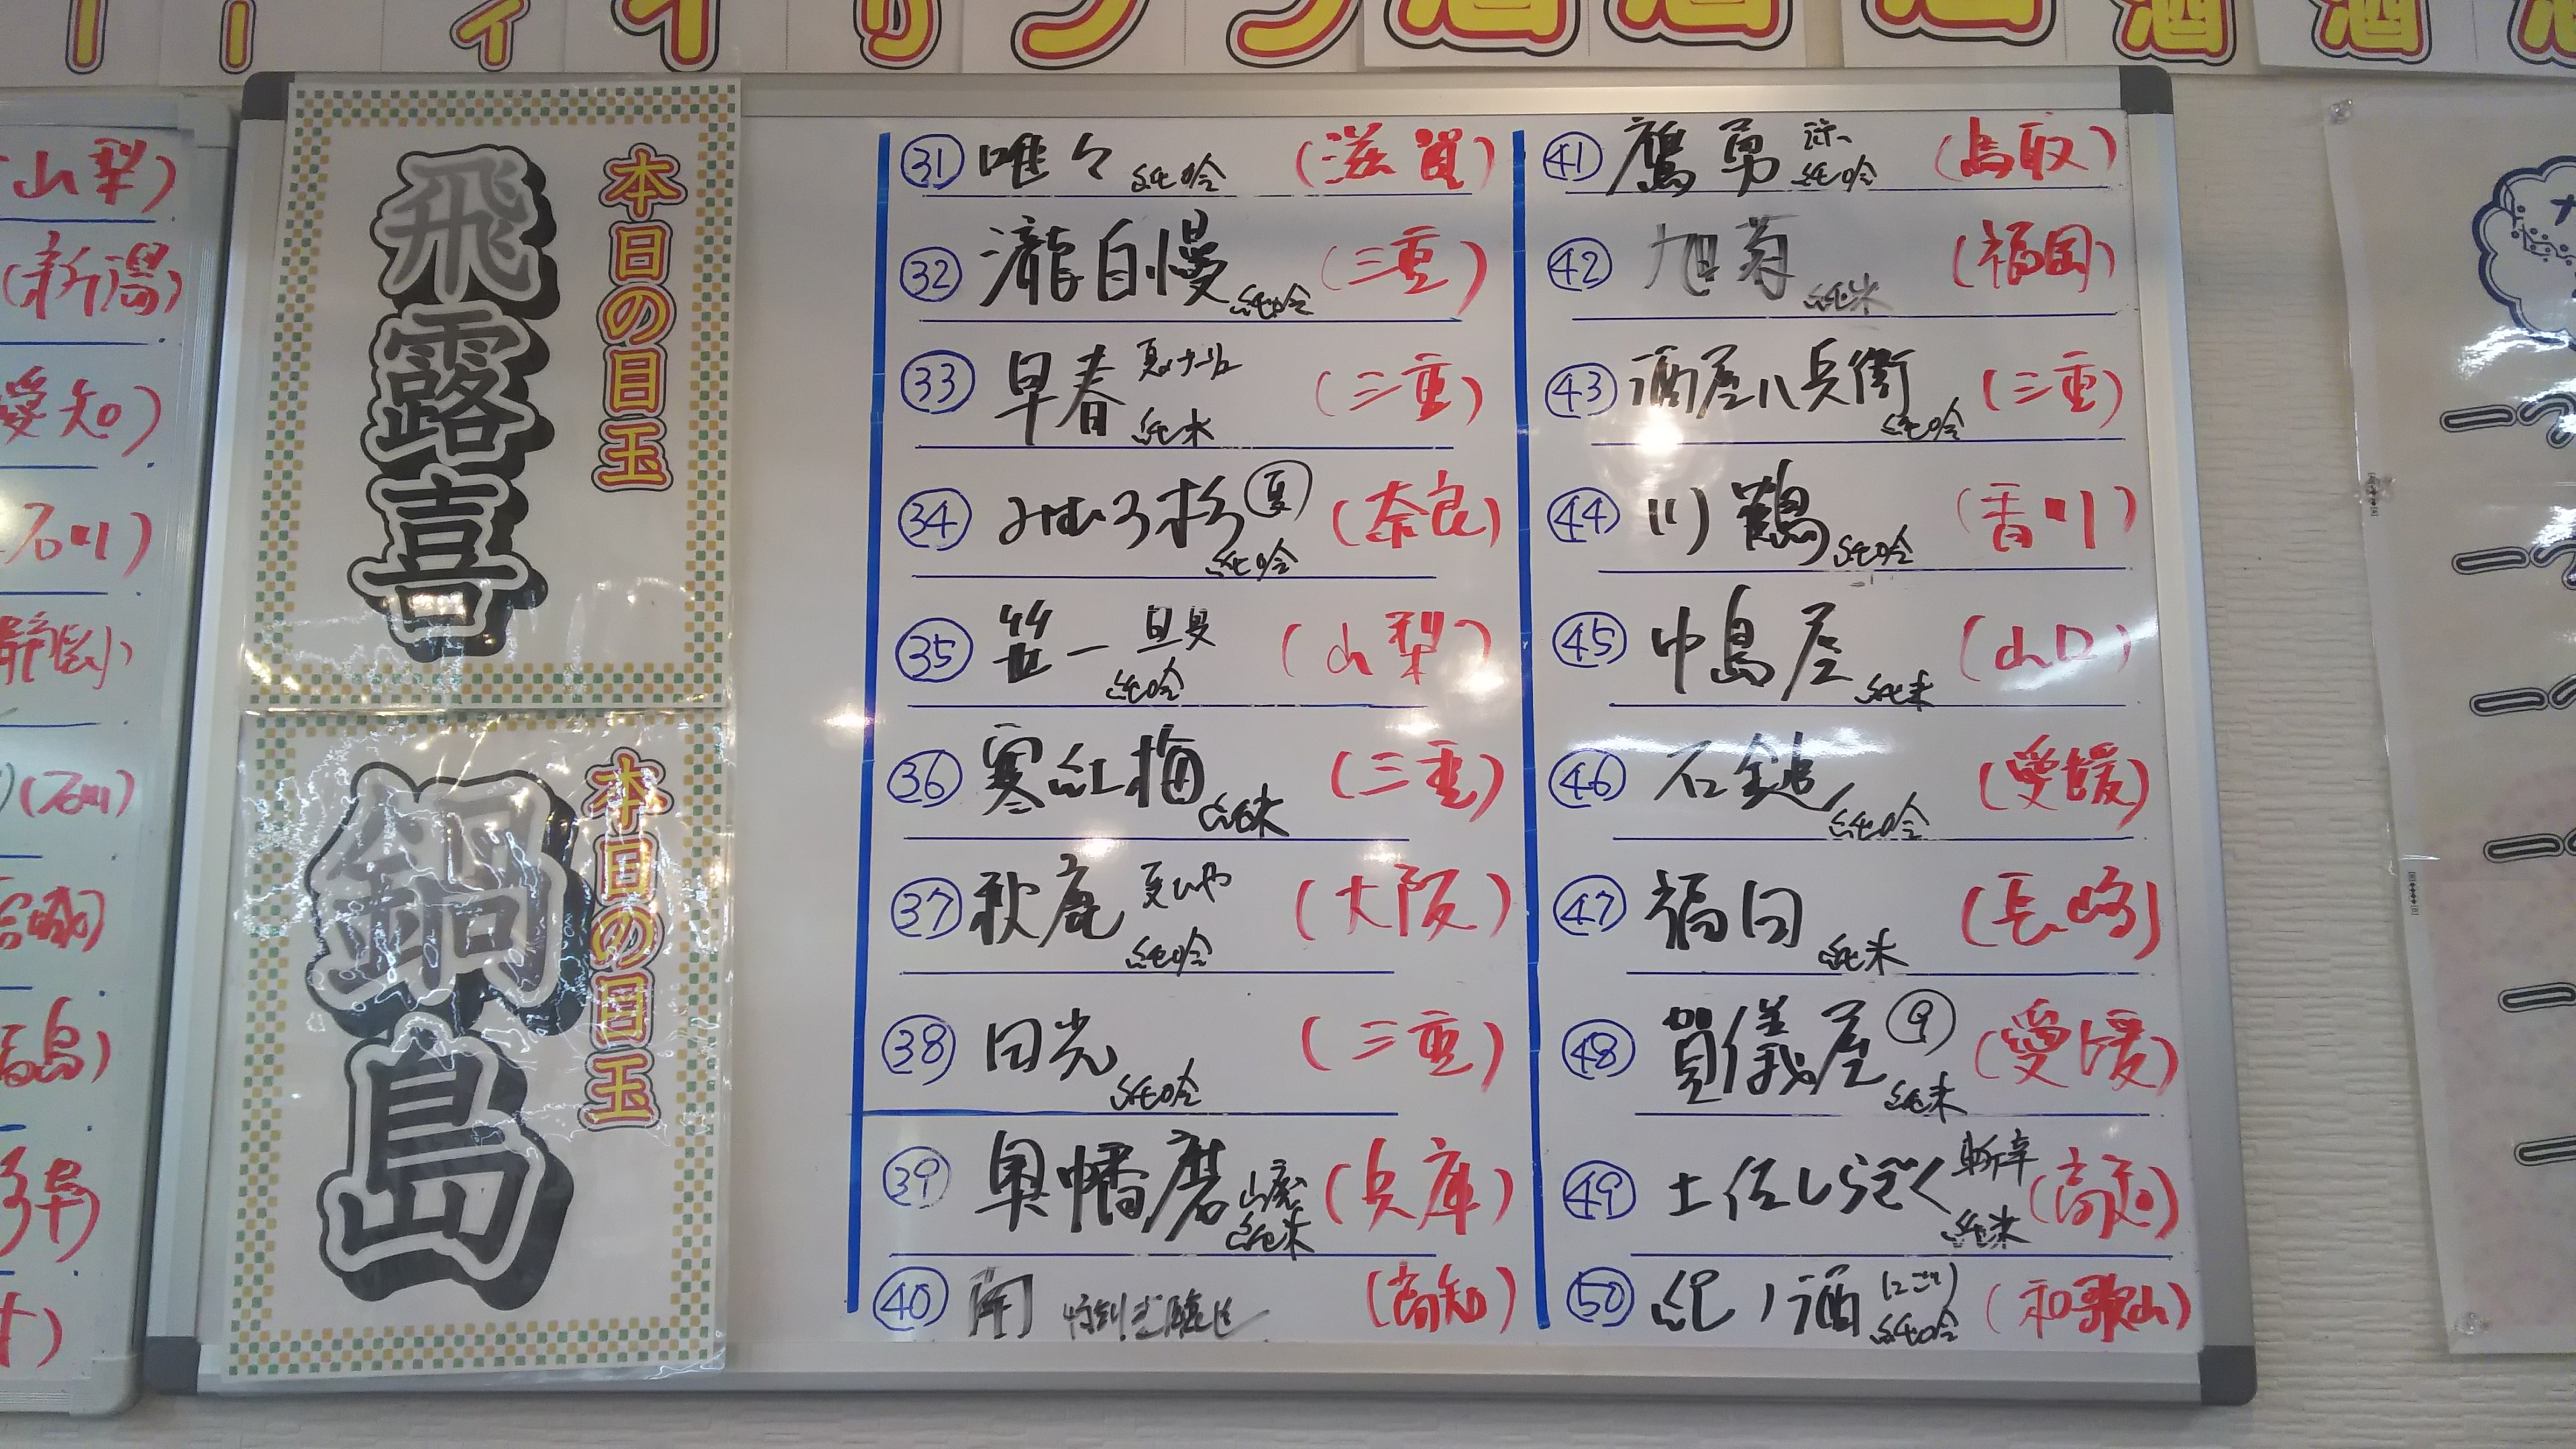 本日の目玉
飛露喜
本日の目玉
鍋島
㉛ 唯々 純吟 (滋賀)
㉜ 瀧自慢 純吟 (三重)
㉝ 早春 純米 (三重)
㉞ みむろ杉 夏 純吟 (奈良)
㉟ 笹一 旦 純吟 (山梨)
㊱ 寒紅梅 純米 (三重)
㊲ 秋鹿 夏 純吟 (大阪)
㊳ 田光 純吟 (三重)
㊴ 奥幡磨 山廃 純米 (兵庫)
㊵ (高知)
㊶ 鷹勇 純吟 (鳥取)
㊷ 旭菊 純米 (福岡)
㊸ 酒屋八兵衛 純吟 (三重)
㊹ 川鶴 純吟 (香川)
㊺ 中島屋 純米 (山口)
㊻ 石鎚 純吟 (愛媛)
㊼ 福田 純米 (長崎)
㊽ 賀儀屋 純米 (愛媛)
㊾ 土佐しらぎく 斬辛 純米 (高知)
㊿ 紀ノ酒 にごり 純吟 (和歌山)
山梨)
(新潟)
愛知)
石川)
静岡)
(石川)
宮城)
福島)